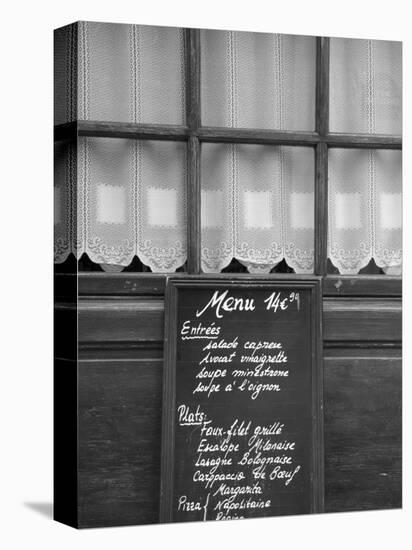 Menu 14€90
Entrées
salade capreze
avocat vinaigrette
soupe minestrone
soupe a l'oignon
Plats:
Faux-filet grillé
Escalope Milanaise
Lasagne Bolognaise
Carppaccio de Bœuf
Margarita
Pizza Napolitaine
Reine